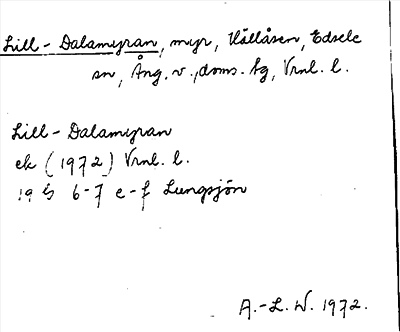 Lill-Dalamyran, myr, Hållåsen, Edsele
sn, Ång. v., doms. hg, Vrnl. l.
Lill-Dalamyran
ek (1972) Vrnl. l.
19 G 6-7 e-f Lungsjön
A.-L. W. 1972.